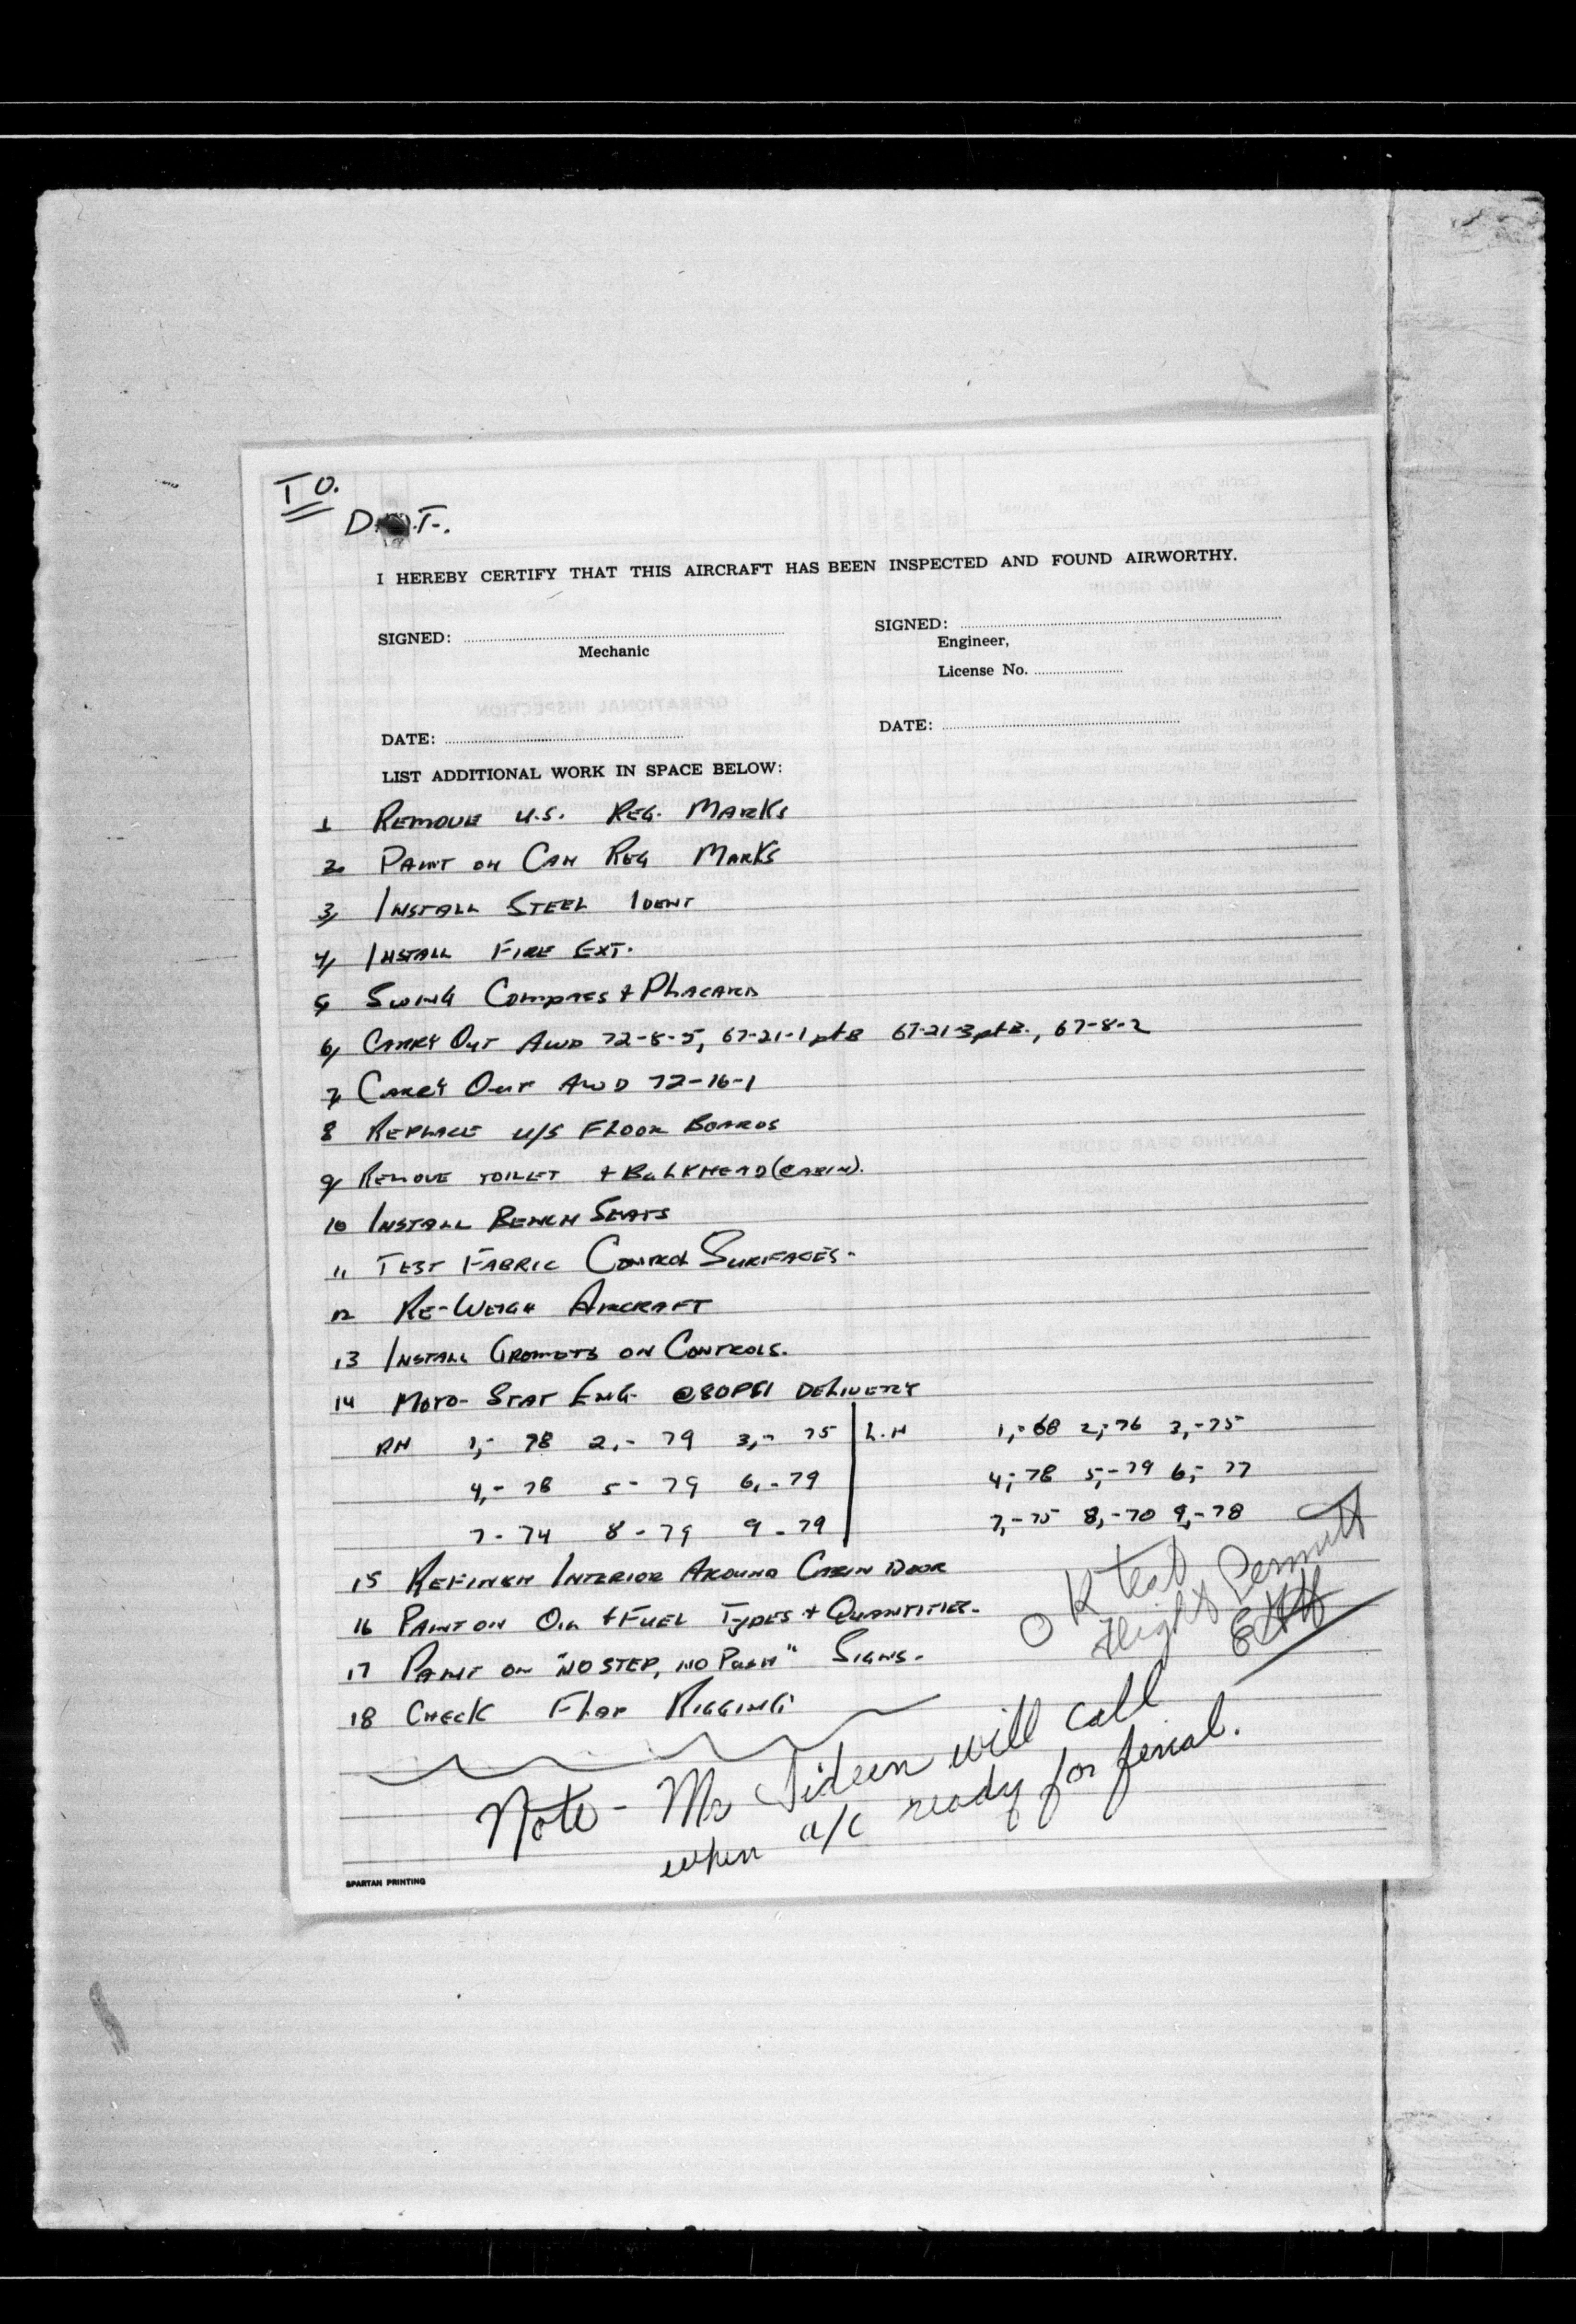 TO.
D.O.T.
I HEREBY CERTIFY THAT THIS AIRCRAFT HAS BEEN INSPECTED AND FOUND AIRWORTHY.
SIGNED: ........ SIGNED: ........
Mechanic Engineer,
License No. ........
DATE: ........ DATE: ........
LIST ADDITIONAL WORK IN SPACE BELOW:
1 REMOVE U.S. REG. MARKS
2 PAINT ON CAN REG MARKS
3, INSTALL STEEL IDENT
4, INSTALL FIRE EXT.
5, SWING COMPASS + PLACARD
6, CARRY OUT AWD 72-8-5, 67-21-1 ptB 67-21-3 ptB., 67-8-2
7, CARRY OUT AWD 72-16-1
8 REPLACE U/S FLOOR BOARDS
9, REMOVE TOILET + BULKHEAD (CABIN).
10 INSTALL BENCH SEATS
11 TEST FABRIC CONTROL SURFACES-
12 RE-WEIGH AIRCRAFT
13 INSTALL GROMETS ON CONTROLS.
14 MOTO-STAT ENG. @80PSI DELIVERY
RH 1,- 78 2,- 79 3,- 75 L.H 1,- 68 2,- 76 3,- 75
4,- 78 5- 79 6,- 79 4,- 78 5,- 79 6,- 77
7- 74 8- 79 9- 79 7,- 75 8,- 70 9,- 78
15 REFINISH INTERIOR AROUND CABIN DOOR
16 PAINT ON OIL + FUEL TYPES + QUANTITIES-
17 PAINT ON "NO STEP, NO PUSH" SIGNS-
18 CHECK FLAP RIGGING
OK test
flight Permitt
Note - Mr will call
when a/c ready for
SPARTAN PRINTING